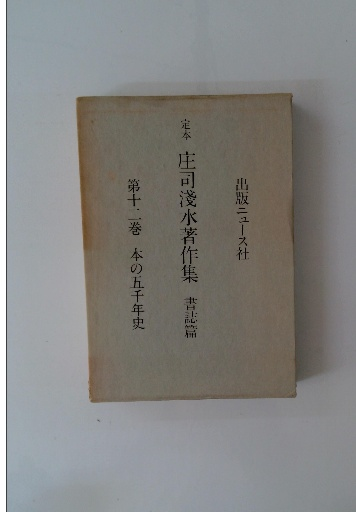 出版ニュース社
定本 庄司淺水著作集 書誌篇
第十二巻 本の五千年史